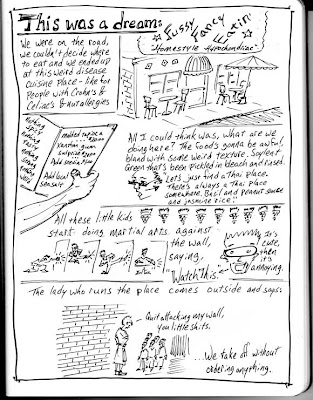 This was a dream:
We were on the road,
we couldn't decide where
to eat and we ended up
at this weird disease
cuisine place - like for
people with Crohn's &
Celiac's & nut allergies
Fussy Fancy Eatin'
"Homestyle Hypochondriac"
Nothing
Spicy
Nothing
Nothing
Nothing
melted tapioca
xantham gum
surprise
Add
Add local
sea salt
All I could think was, what are we
doing here? The food's gonna be awful,
bland with some weird texture. Soylent
Green that's been pickled in bleach and rinsed.
Let's just find a Thai place.
There's always a Thai place
somewhere. Basil and peanut sauce
and jasmine rice!
All these little kids
start doing martial arts against
the wall,
saying,
"Watch this."
It's
cute,
then
it's
annoying.
The lady who runs the place comes outside and says:
Quit attacking my wall,
you little shits.
...We take off without
ordering anything.